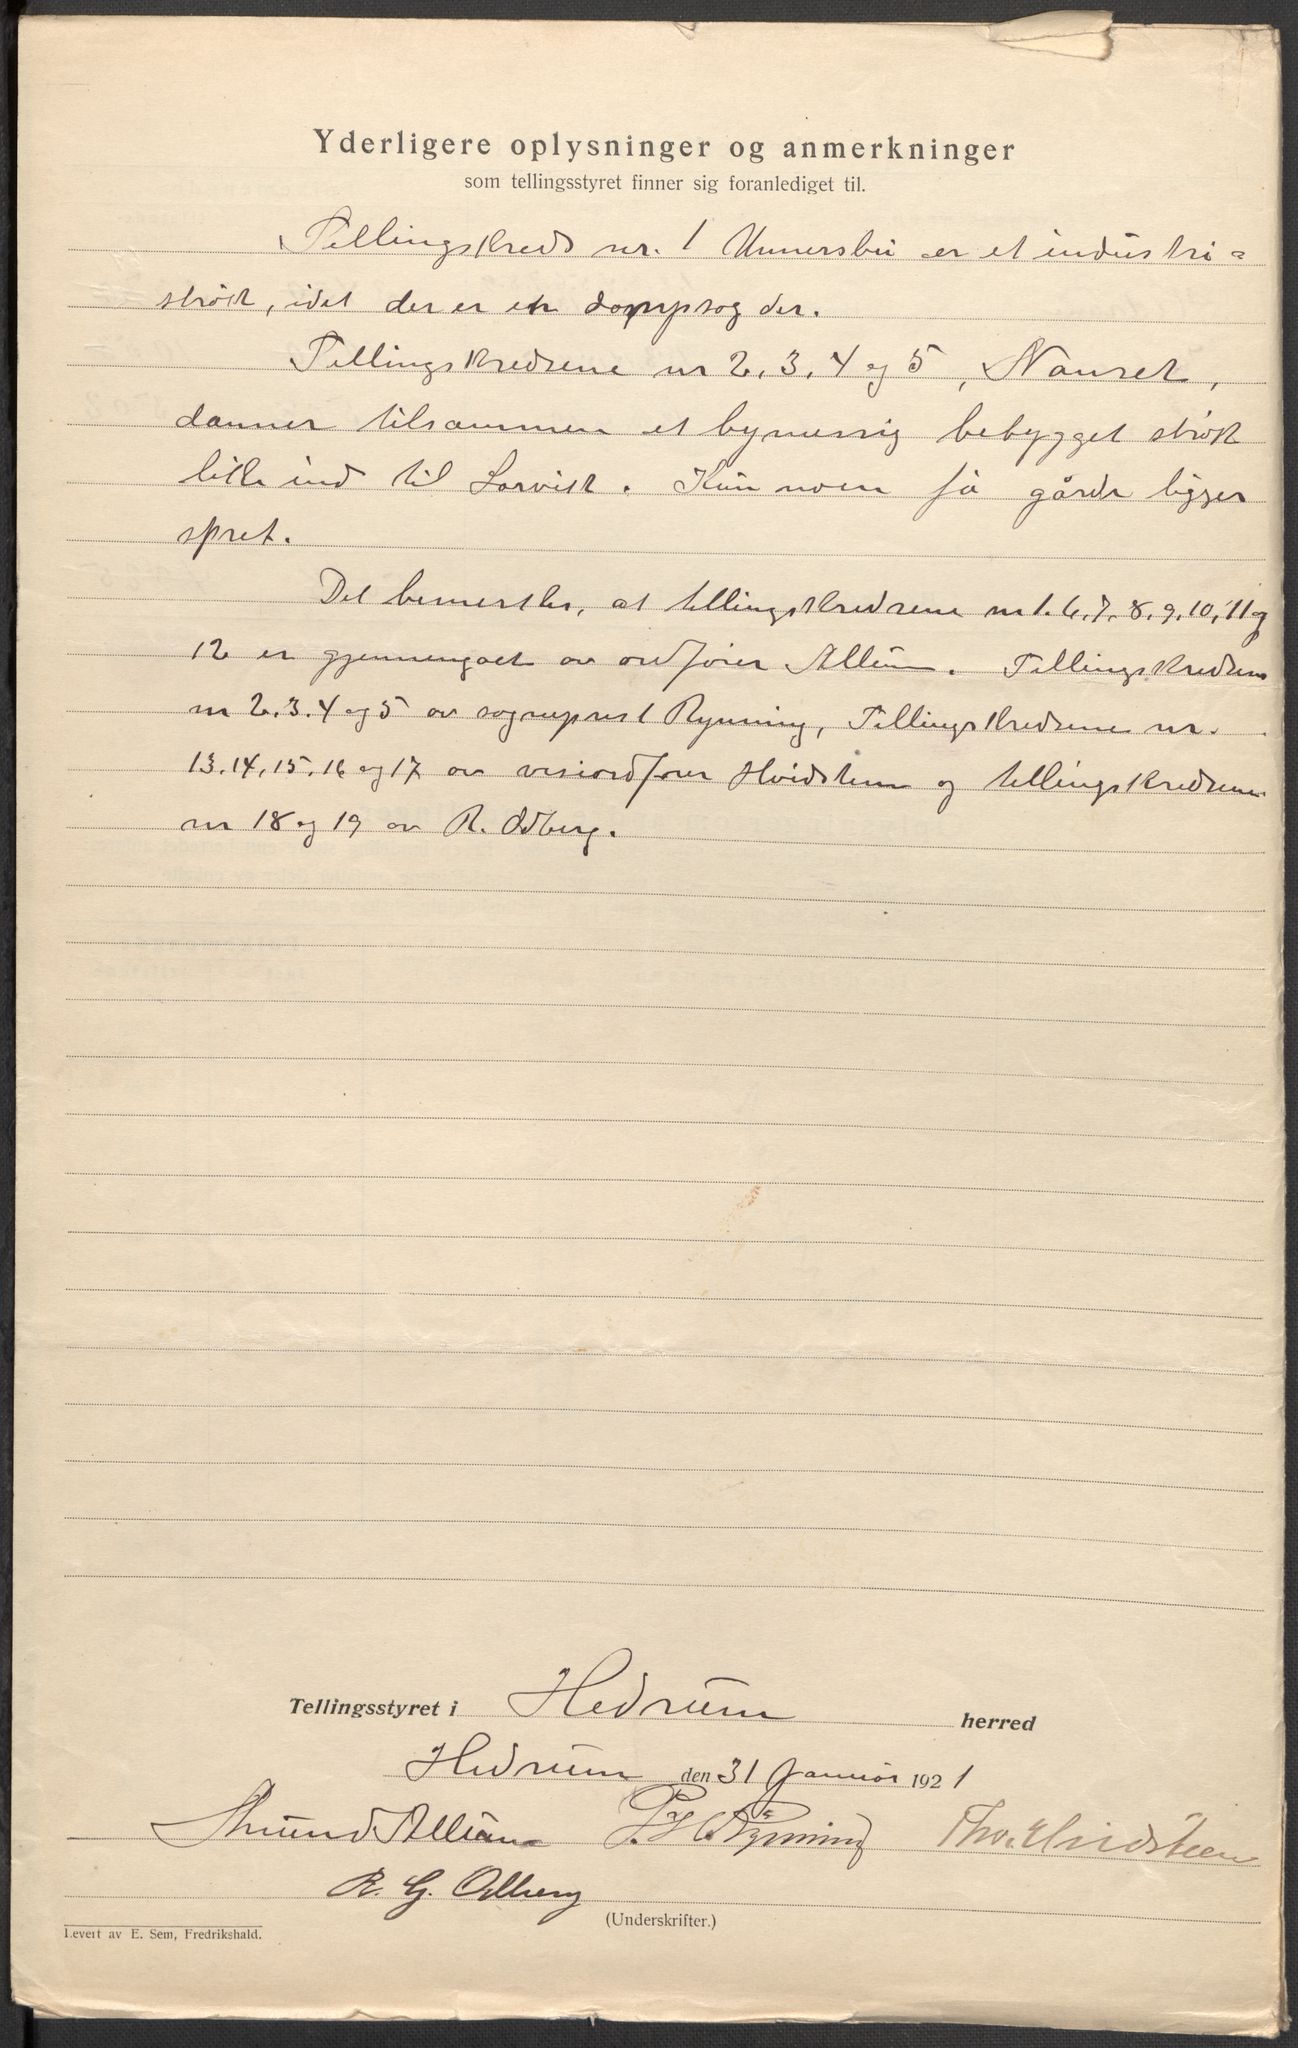 Yderligere oplysninger og anmerkninger
som tellingsstyret finner sig foranlediget til.
Tellingskreds nr. 1 Unnersbu er et industri-
strøk, idet der er en dampsag der.
Tellingskredsene nr 2, 3, 4 og 5, Nanset,
danner tilsammen et bymessig bebygget strøk
like ind til Larvik. Kun noen få gårde ligger
spret.
Det bemerkes, at tellingskredsene nr 1. 6. 7. 8. 9. 10, 11 og
12 er gjennemgaaet av ordfører Allum. Tellingskredsene
nr 2. 3. 4 og 5 av sogneprest Rynning, Tellingskredsene nr.
13. 14, 15. 16 og 17 av viseordfører Hvidsteen og tellingskredsene
nr 18 og 19 av R. Odberg.
Tellingsstyret i Hedrum herred
Hedrum den 31 januar 1921
Allum P. Rynning Tho. Hvidsteen
R. G. Odberg
(Underskrifter.)
Levert av E. Sem, Fredrikshald.